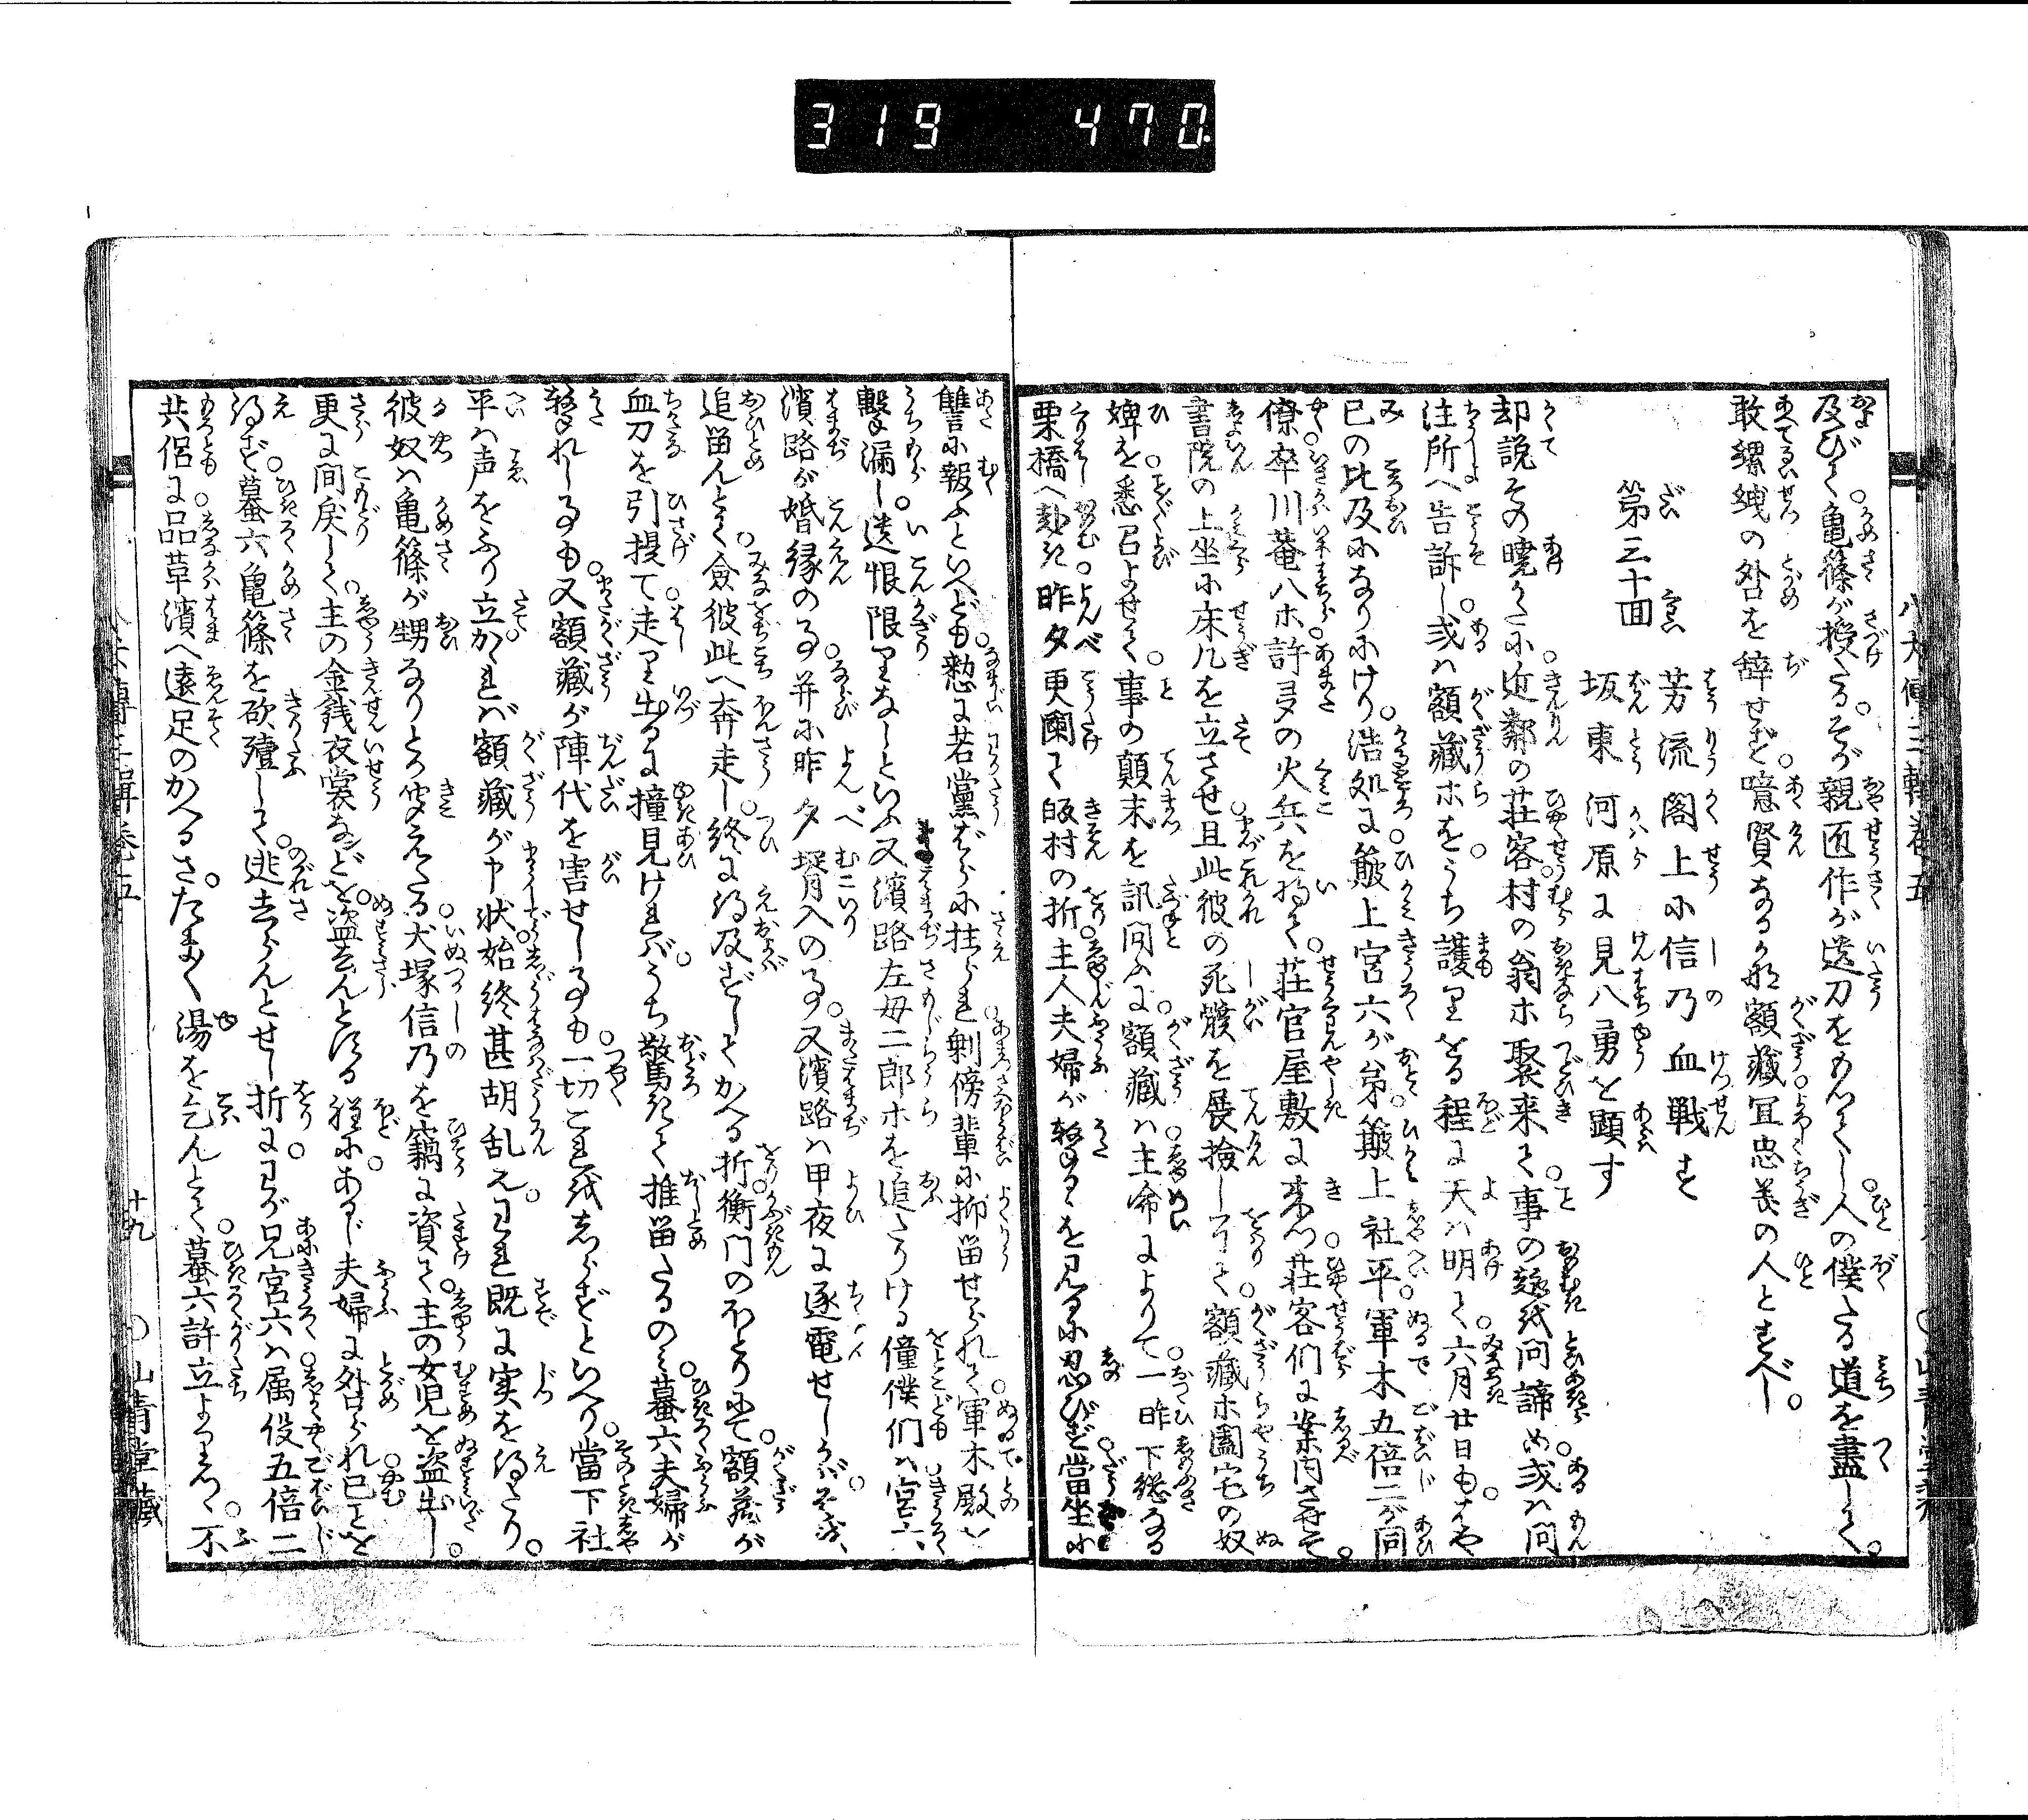 319 470
及びて亀篠が授たるそが親匠作が送刀をもてしつ人の僕たる道を盡して。
敢縲絏の咎を辞せず噫賢なるかな額藏冝忠義の人とすべし。
第三十回
芳流閣上に信乃血戦す
坂東河原に見八勇を顕す
却説その暁かたに近鄰の荘客村の翁ホ聚来て事の趣を問諦め或は問
注所へ告訴し或は額藏ホをうち護りをる程に天は明て六月廿日もはや
巳の比及になりにけり浩処に簸上宮六が弟簸上社平軍木五倍二が同
僚卒川菴八ホ許多の火兵を将て荘官屋敷に来つ荘客們に案内させそ。
書院の上坐に床几を立させ且此彼の死骸を展撿し訖て額藏ホ闔宅の奴
婢を悉召よせて事の顛末を訊問ふに額藏は主命によりて一昨下総なる
栗橋へ赴き昨夕更闌て皈村の折主人夫婦が撃るゝを見るに忍びず當坐に
讐に報ふといへども憖に若黨ばらに拄られ剰傍輩に抑畄せられて軍木殿を
擊漏し送恨限りなしといふ又濱路左毋二郎ホを追たりける僮僕們は宮六、
濱路が婚縁の事并に昨夕壻入の事又濱路は甲夜に逐電せしかばそを、
追畄んとて僉彼此へ奔走し終に得及ずしてかへる折衡門のほとりにて額藏が
血刀を引提て走り出るに撞見ければうち驚きて推畄たるのみ蟇六夫婦が
撃れし事も又額藏が陣代を害せし事も一切これをしらずといへり當下社
平は声をふり立かくれば額藏が申状始終甚胡乱なりわれ既に実を得たり。
彼奴は亀篠が甥なりとか聞えたる犬塚信乃を竊に資て主の女児を盗出し。
更に間戻して主の金銭夜裳などを盗去んとする程にあるじ夫婦に咎られ已ことを
得ず蟇六亀篠を砍殪して逃去らんとせし折にわが兄宮六は属役五倍二
共侶に品草濱へ遠足のかへるさたまく湯を乞んとて蟇六許立よりしつゝ不
十九
山青堂藏